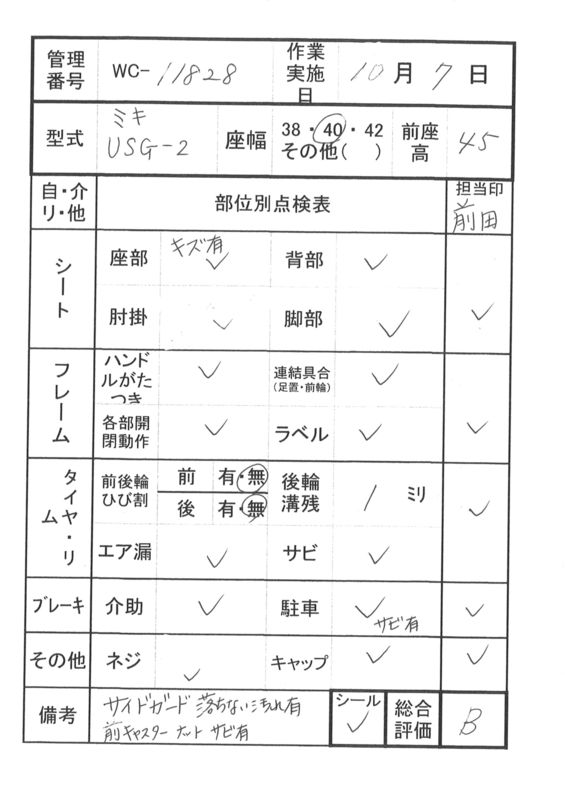 管理番号 WC-11828 作業実施日 10月7日
型式 ミキ USG-2 座幅 38・40・42 その他( ) 前座高 45
自・介リ・他 部位別点検表 担当印 前田
シート 座部 キズ有 ✓ 背部 ✓
肘掛 ✓ 脚部 ✓ ✓
フレーム ハンドルがたつき ✓ 連結具合(足置・前輪) ✓
各部開閉動作 ✓ ラベル ✓ ✓
タイヤ・リム 前後輪ひび割 前 有・無 後輪溝残 / ミリ
後 有・無 ✓
エア漏 ✓ サビ ✓
ブレーキ 介助 ✓ 駐車 ✓ サビ有 ✓
その他 ネジ ✓ キャップ ✓ ✓
備考 サイドガード 落ちない汚れ有 シール ✓ 総合評価 B
前キャスター ナット サビ有